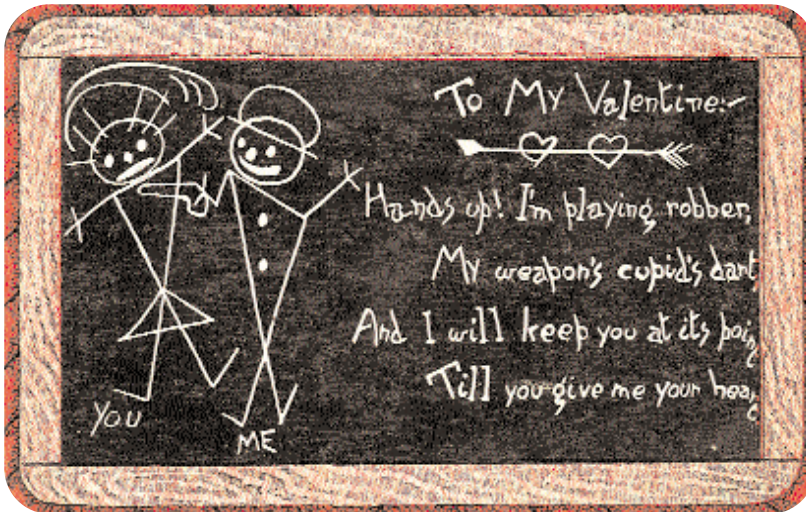 To My Valentine:-
Hands up! I'm playing robber,
My weapon's cupid's dart
And I will keep you at its poin
Till you give me your hea
YOU
ME